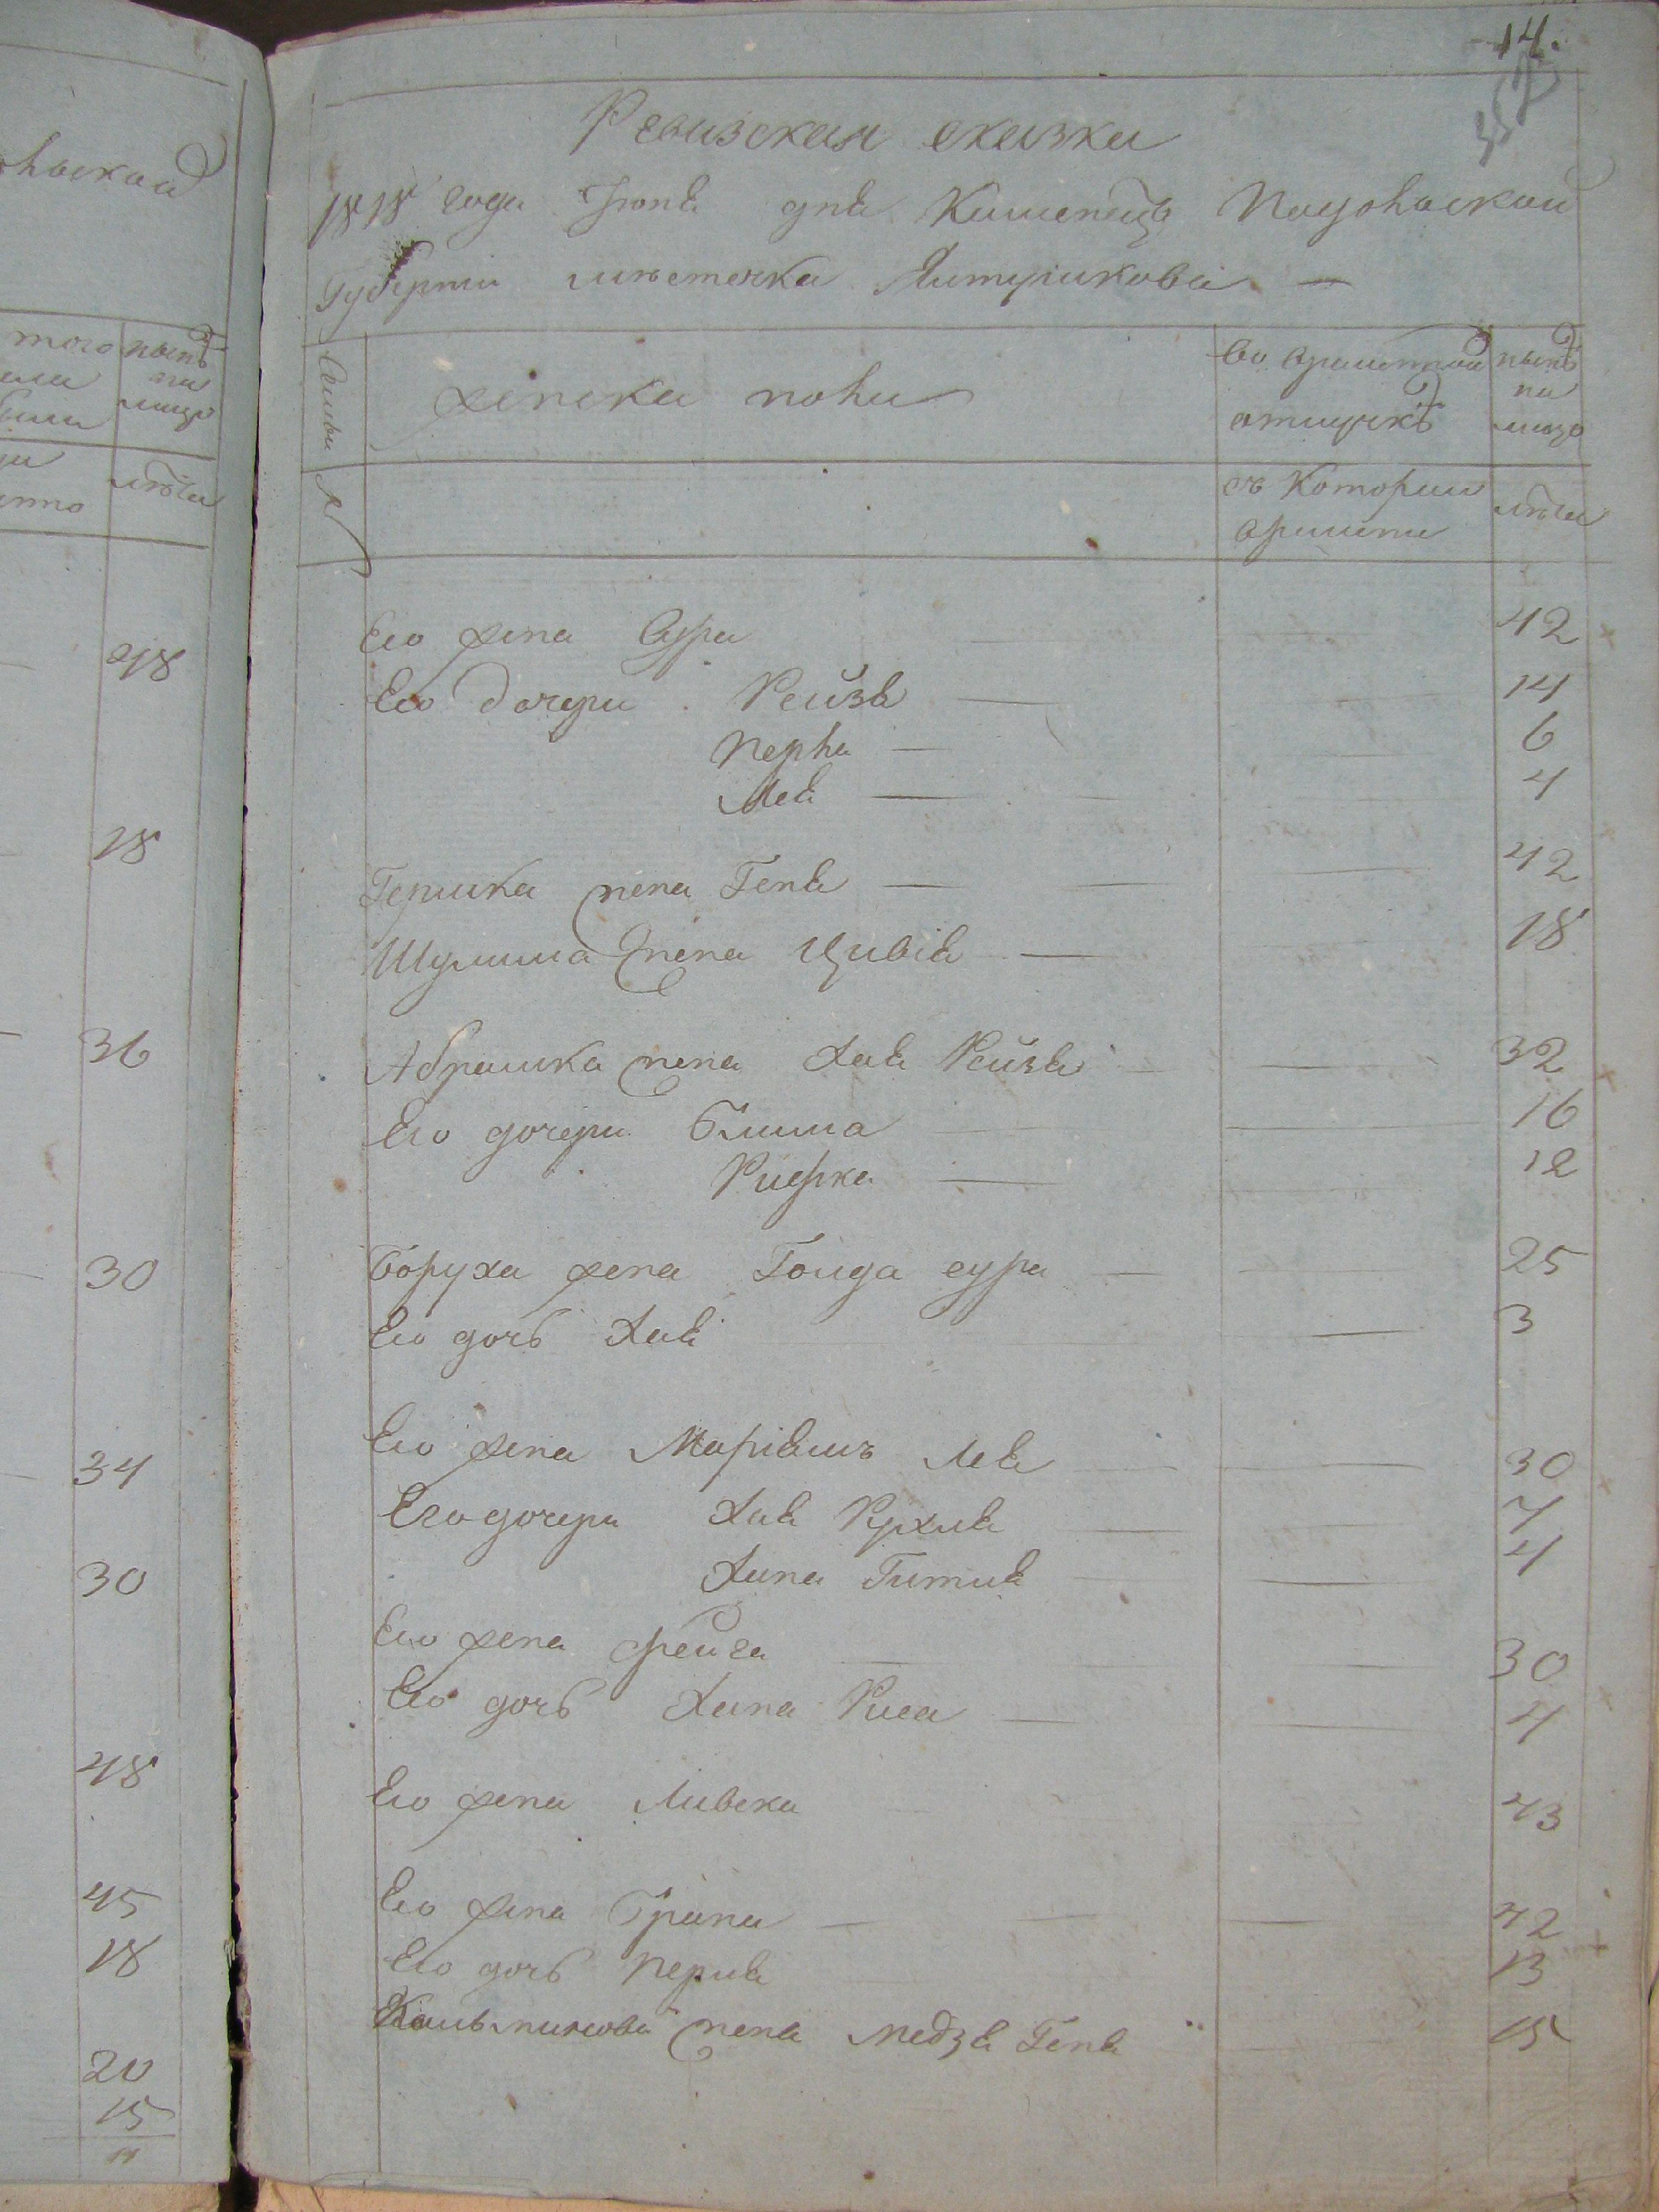 14.
Ревизская сказка
1818 года Іюня дня Каменецъ Подольской
Губерніи мѣстечка Ялтушкова —
Семьи
женска полу
во временной отлучкѣ
нынѣ на лицо
№
съ которого времени
лѣта
Его жена Сура 42
Его дочери Рейзя 14
Перла 6
Лея 4
Гершка жена Геня 42
Шулима жена Цивія 18
Абрашка жена Хая Рейзя 32
Его дочери Блима 16
Рифка 12
Боруха жена Голда сура 25
Его дочь Хая 3
Его жена Маріямъ Лея 30
Его дочери Хая Рухля 7
Хана Гитля 4
Его жена Фейга 30
Его дочь Хана Риса 4
Его жена Ливска 43
Его жена Брана 42
Его дочь Перля 13
жена Геня 15
ольской
того
нынѣ на лицо
лѣта
48
18
36
30
34
30
48
45
18
20
15